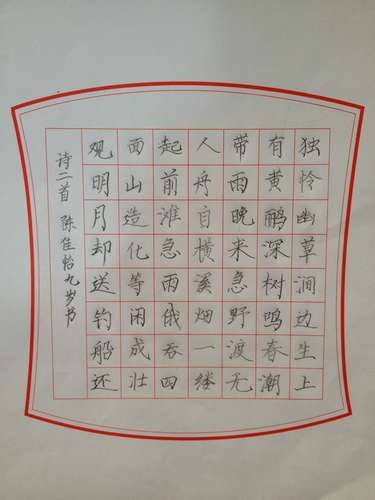 独怜幽草涧边生上
有黄鹂深树鸣春潮
带雨晚来急野渡无
人舟自横溪烟一缕
起前滩急雨俄吞四
面山造化等闲成壮
观明月却送钓船还
诗二首 陈佳怡九岁书